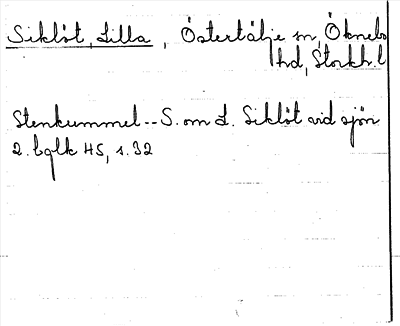 Siklöt, Lilla, Östertälje sn, Öknebo
hd, Stockh. l
Stenkummel -- S. om L. Siklöt vid sjön
2. bglk H5, s. 32